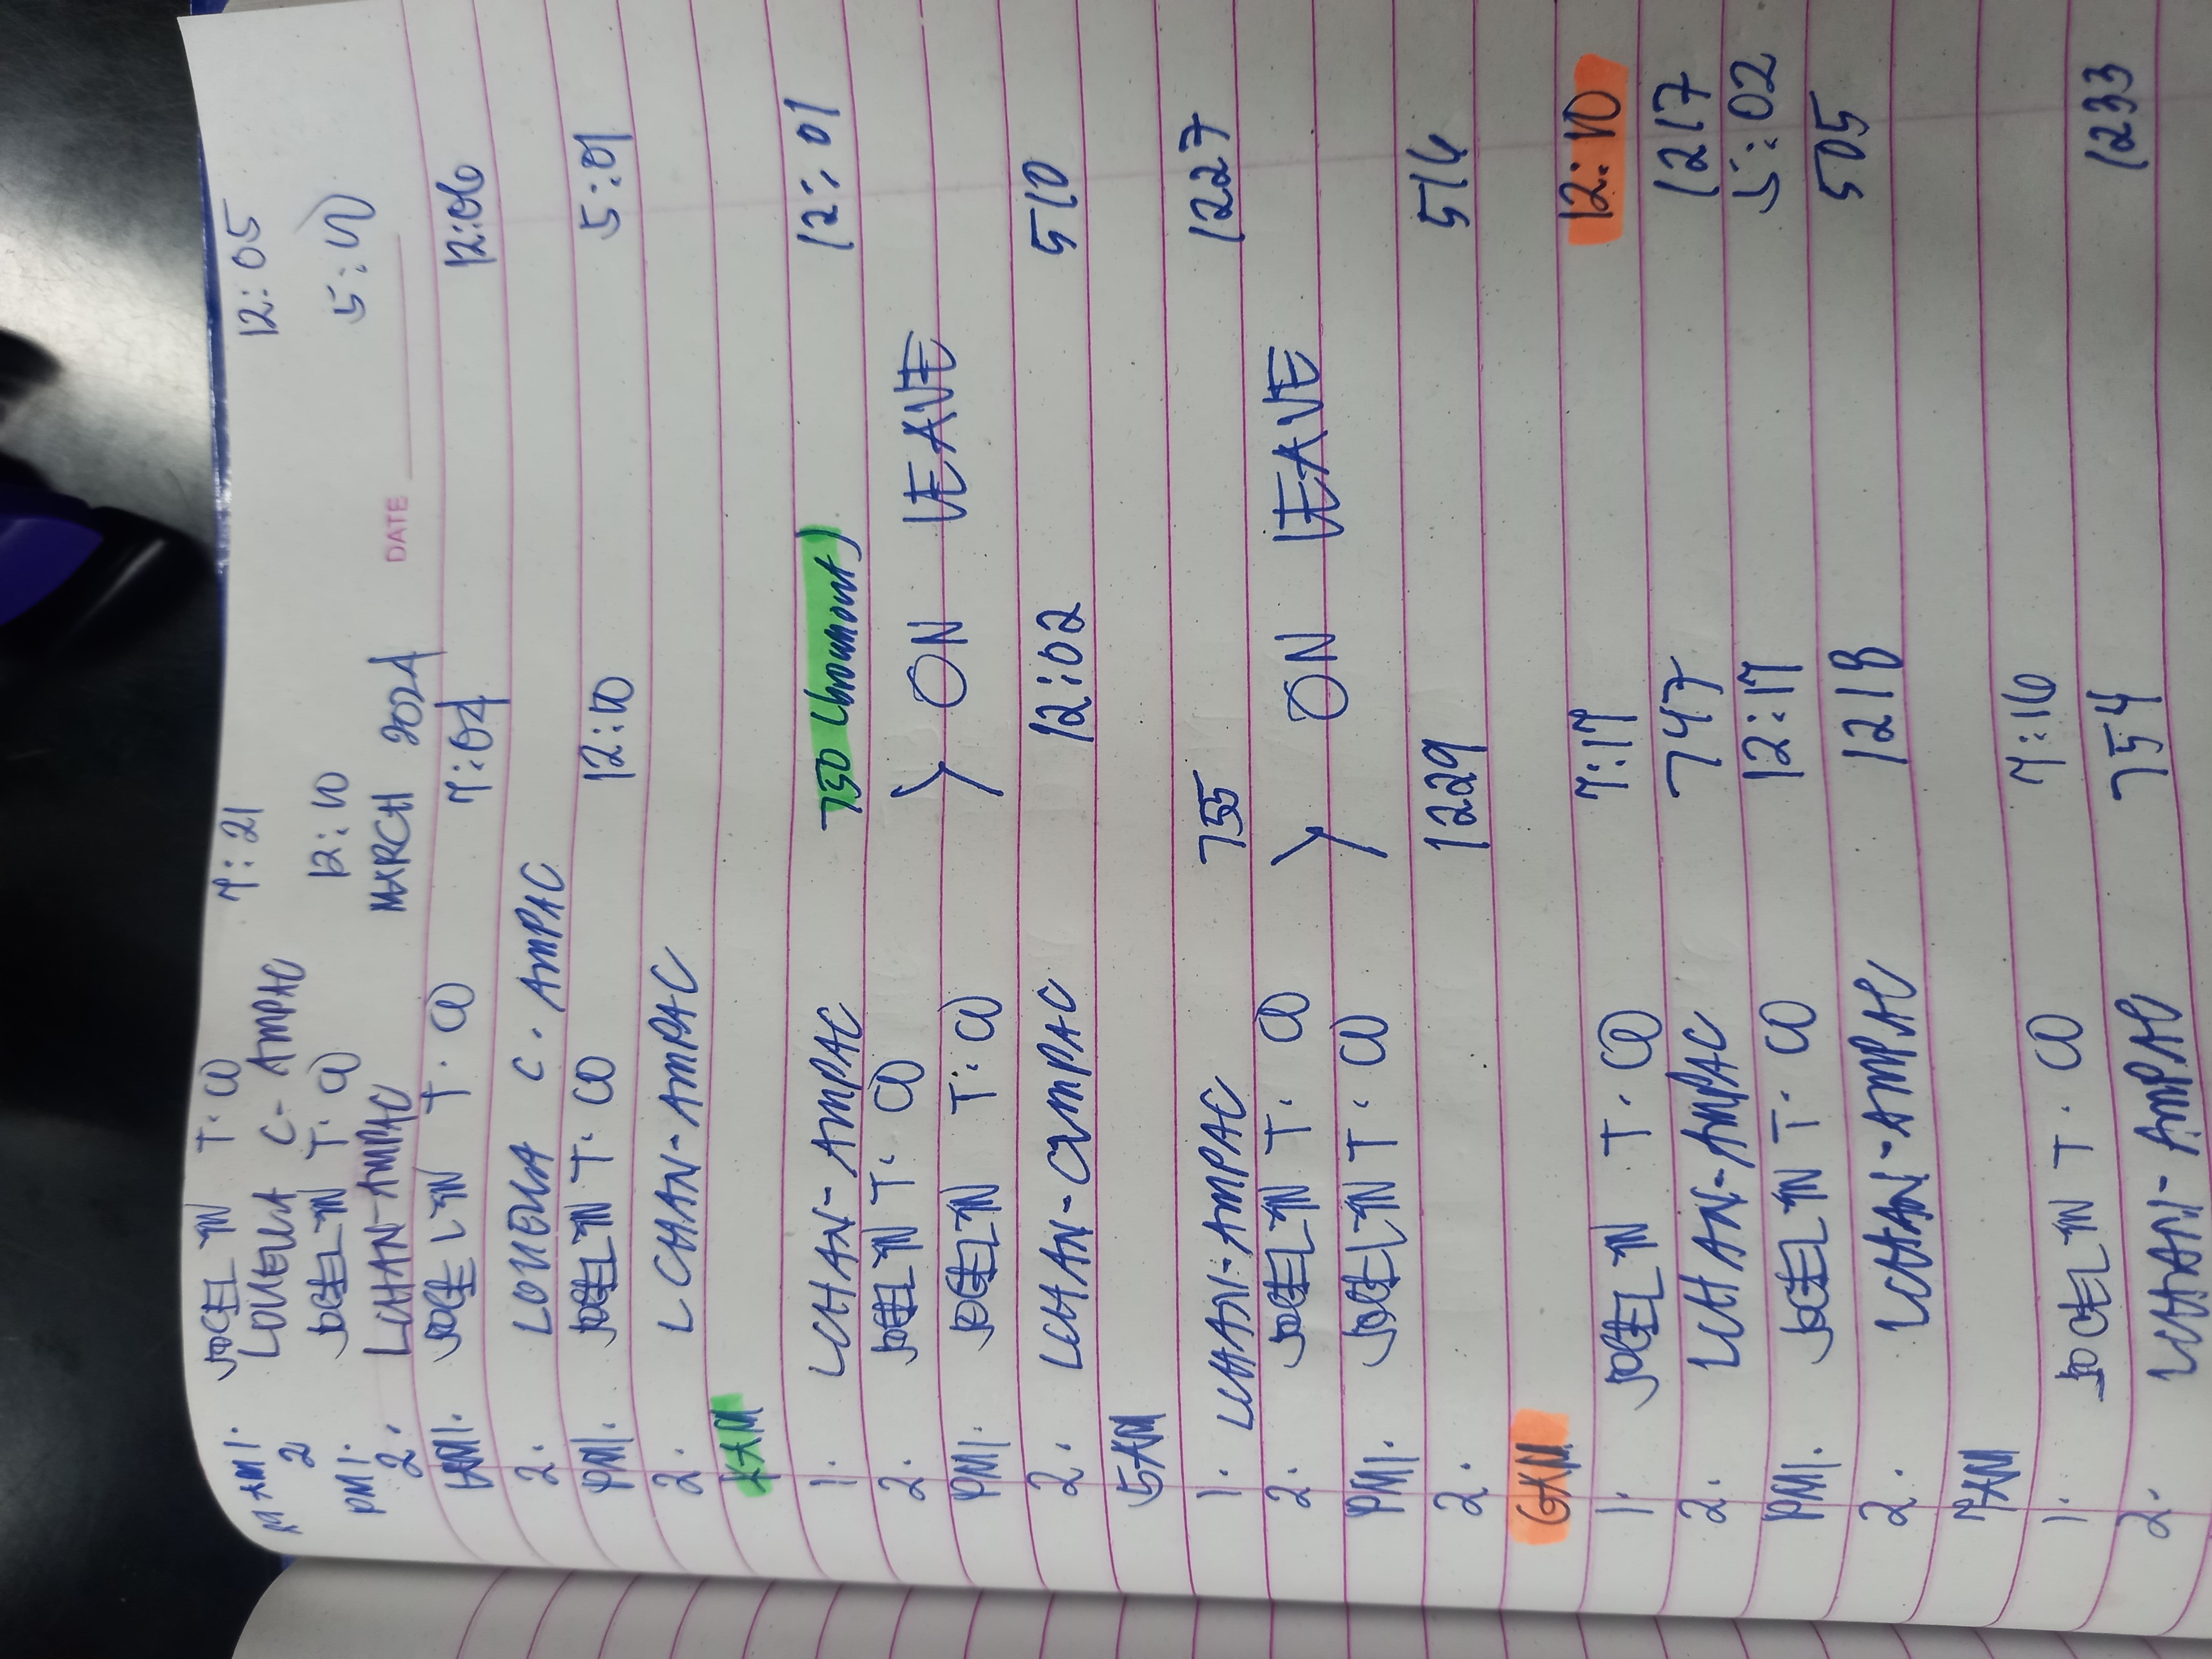 AM1. JOCELYN T. CO 7:21 12:05
2 LOUELLA C- AMPAC
PM1. JOCELYN T. CO 12:10 5:01
2. LCHAN-AMPAC MARCH 2024 DATE
1AM1. JOCELYN T. CO 7:04 12:06
2. LOUELLA C. AMPAC
PM1. JOCELYN T. CO 12:10 5:01
2. LCHAN-AMPAC
4AM
1. LCHAN-AMPAC 750 (brownout) 12:01
2. JOCELYN T. CO ON LEAVE
PM1. JOCELYN T. CO
2. LCHAN-AMPAC 12:02 510
5AM
1. LCHAN-AMPAC 755 1227
2. JOCELYN T. CO ON LEAVE
PM1. JOCELYN T. CO
2. 1229 516
6AM
1. JOCELYN T. CO 7:17 12:10
2. LCHAN-AMPAC 747 1217
PM1. JOCELYN T. CO 12:17 5:02
2. LCHAN-AMPAC 1218 505
7AM
1. JOCELYN T. CO 7:16
2. LCHAN-AMPAC 754 1233